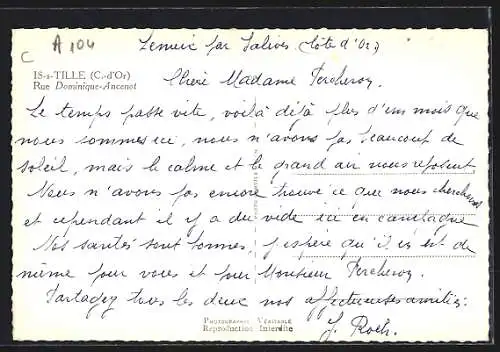 C A 104
Lemeix par Salives (Côte d'Or)
IS-s-TILLE (C.-d'Or)
Rue Dominique-Ancenot
Chère Madame Percheron.
Le temps passe vite, voilà déjà plus d'un mois que
nous sommes ici, nous n'avons pas beaucoup de
soleil, mais le calme et le grand air nous reposent
Nous n'avons pas encore trouvé ce que nous cherchons
et cependant il y a du vide ici en campagne
Nos santés sont bonnes, j'espère qu'il en est de
même pour vous et pour Monsieur Percheron.
Partagez tous les deux nos affectueuses amitiés.
J. Roch.
PHOTOGRAPHIE VÉRITABLE
Reproduction Interdite